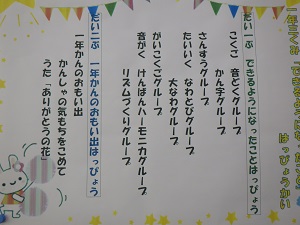 一年二くみ「できるようになったこと
はっぴょうかい
だい一ぶ できるようになったことはっぴょう
こくご 音どくグループ
かん字グループ
さんすうグループ
たいいく なわとびグループ
大なわグループ
がいこくごグループ
音がく けんばんハーモニカグループ
リズムづくりグループ
だい二ぶ 一年かんのおもい出はっぴょう
一年かんのおもい出
かんしゃの気もちをこめて
うた「ありがとうの花」